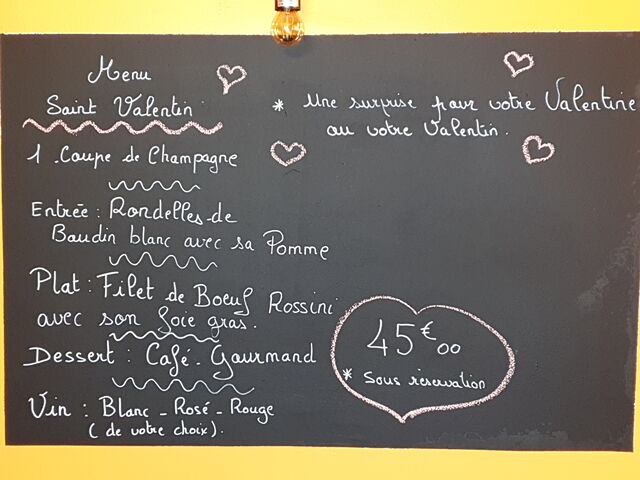 Menu
Saint Valentin
* Une surprise pour votre Valentine
ou votre Valentin.
1 Coupe de Champagne
Entrée : Rondelles de
Boudin blanc avec sa Pomme
Plat : Filet de Boeuf Rossini
avec son foie gras.
Dessert : Café - Gourmand
Vin : Blanc - Rosé - Rouge
( de votre choix ).
45€00
* Sous réservation